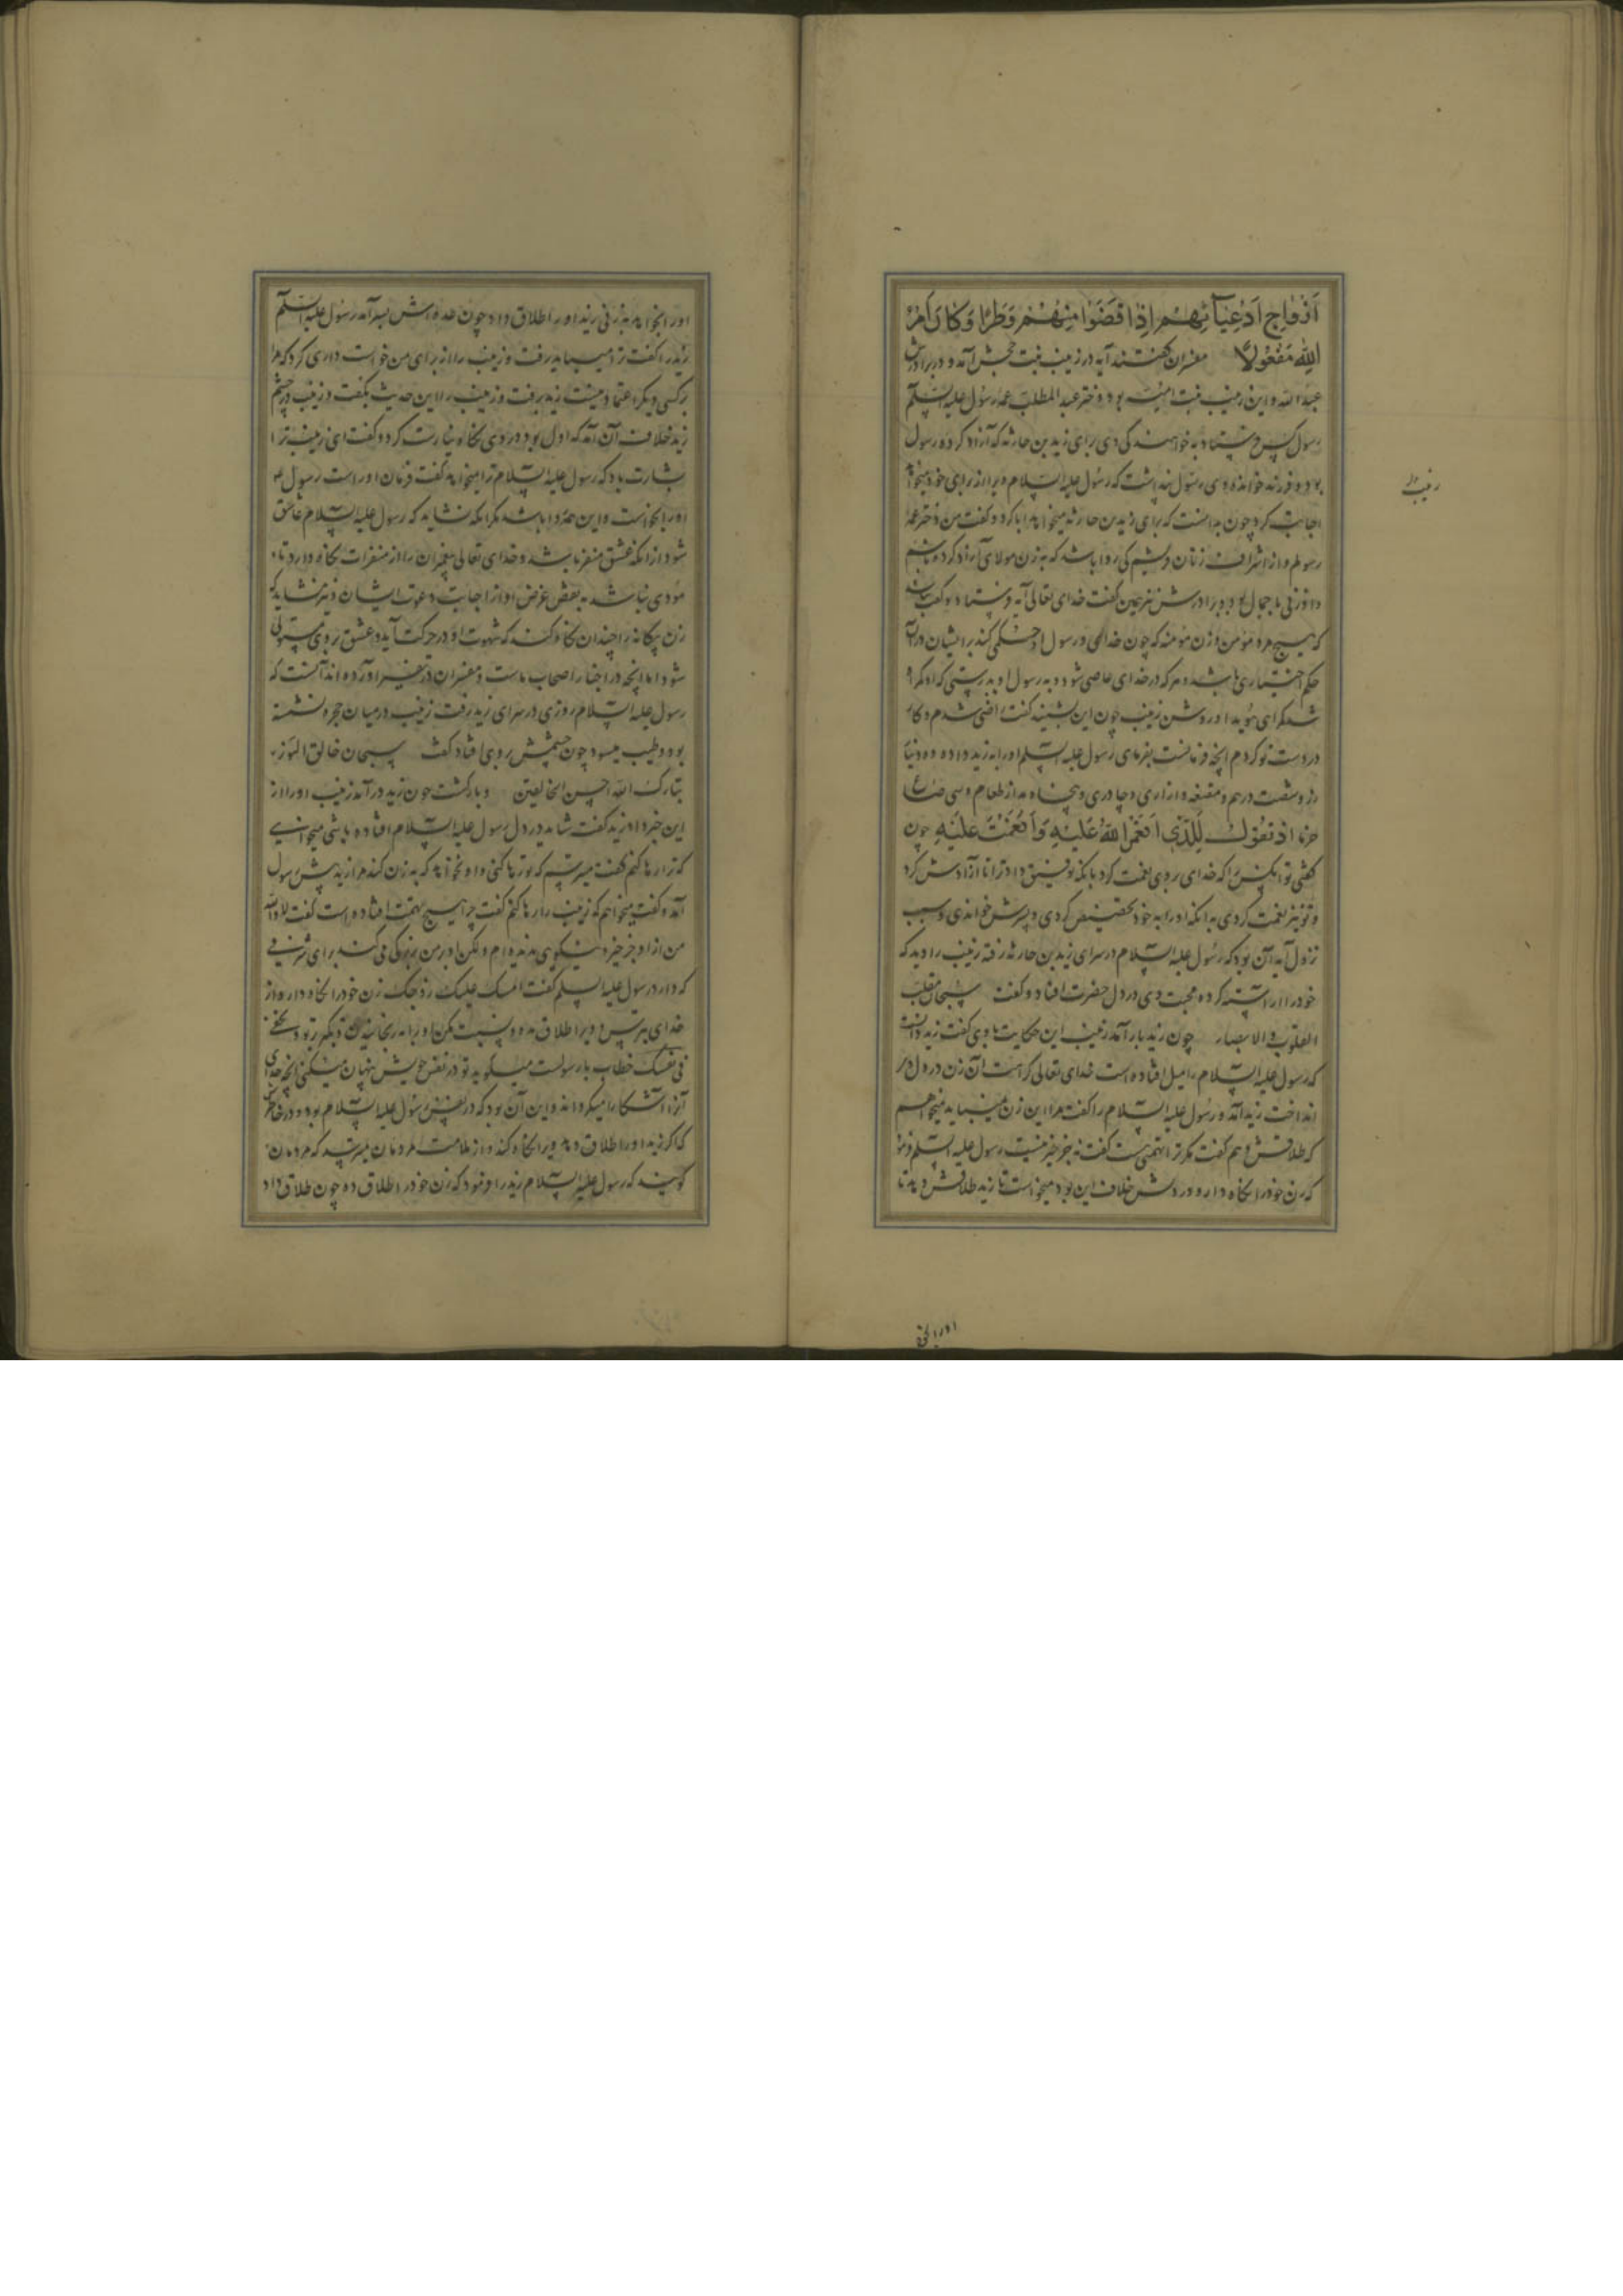 اَزْوَاجِ اَدْعِیَآئِهِمْ اِذَا قَضَوْا مِنْهُنَّ وَطَرًا وَکَانَ اَمْرُ
اللّٰهِ مَفْعُولًا مفسران گفتند آیه در زینب بنت جحش آمد و در برادرش
عبد الله و این زینب بنت امیمه بود دختر عبد المطلب عمه رسول علیه السلم
رسول کس فرستاد به خواهندگی وی برای زید بن حارثه که آزاد کرده رسول
بود و فرزند خوانده وی رسول پنداشت که رسول علیه السلام ویرا از برای خود میخواهد
اجابت کرد چون بدانست که برای زید بن حارثه میخواهد ابا کرد و گفت من دختر عمه
رسولم و از اشراف زنان قریشم کی روا باشد که به زن مولای آزاد کرده باشم
و او زنی با جمال بود و برادرش نیز همین گفت خدای تعالی آیه فرستاد و گفت نباشد
که هیچ مرد مؤمن و زن مؤمنه که چون خدای و رسول او حکمی کند بر ایشان در آن
حکم اختیاری باشد و هر که در خدای عاصی شود و به رسول او بدرستی که او گمراه
شد گمراهی هویدا و روشن زینب چون این بشنید گفت راضی شدم و کار
در دست تو کردم آنچه فرمانست بفرمای رسول علیه السلم او را به زید داد و ده دینار
زر و شصت درهم و مقنعه و ازاری و چادری و پنجاه مد از طعام و سی صاع
خرما اِذْ تَقُولُ لِلَّذِی اَنْعَمَ اللّٰهُ عَلَیْهِ وَاَنْعَمْتَ عَلَیْهِ چون
گفتی تو آنکس را که خدای بر وی نعمت کرد بانکه توفیق داد ترا تا آزادش کرد
و تو نیز نعمت کردی به آنکه او را به خود تخصیص کردی و پسرش خواندی و سبب
نزول آیه آن بود که رسول علیه السلام در سرای زید بن حارثه رفته زینب را دید که
خود را آراسته کرده محبت وی در دل حضرت افتاد و گفت سبحان مقلب
القلوب و الابصار چون زید باز آمد زینب این حکایت با وی گفت زید دانست
که رسول علیه السلام را میل افتاده است خدای تعالی کراهت آن زن در دل او
انداخت زید آمد و رسول علیه السلام را گفت مرا این زن نمیباید میخواهم
که طلاقش دهم گفت مگر ترا تهمتی هست گفت نه جز خیر نیست رسول علیه السلم فرمود
که زن خود را نگاه دار و در دلش خلاف این بود میخواست تا زید طلاقش دهد تا
زینب
او را بخو
او را بخواهد به زنی زید او را طلاق داد چون عده اش بسر آمد رسول علیه السلم
زید را گفت ترا میباید رفت و زینب را از برای من خواستداری کرد که مرا
بر کسی دیگر اعتماد نیست زید برفت و زینب را این حدیث بگفت و زینب در چشم
زید خلاف آن آمد که اول بود در وی نگاه نیارست کرد و گفت ای زینب ترا
بشارت باد که رسول علیه السلام ترا میخواهد گفت فرمان او راست رسول ع
او را بخواست و این همه روا باشد مگر آنکه نشاید که رسول علیه السلام عاشق
شود از آنکه عشق منفر باشد و خدای تعالی پیغمبران را از منفرات نگاه دارد تا
مؤدی نباشد به نقض غرض او از اجابت دعوت ایشان و نیز نشاید که
زن بیگانه را چندان نگاه کند که شهوت او در حرکت آید و عشق بر وی مستولی
شود اما آنچه در اخبار اصحاب ماست و مفسران در تفسیر آورده اند آنست که
رسول علیه السلام روزی در سرای زید رفت زینب در میان حجره نشسته
بود و طیب میسود چون چشمش بر وی افتاد گفت سبحان خالق النور
تبارک الله احسن الخالقین و بازگشت چون زید در آمد زینب او را از
این خبر داد زید گفت شاید در دل رسول علیه السلام افتاده باشی میخواهی
که ترا رها کنم گفت میترسم که تو رها کنی و او نخواهد که به زن کند مرا زید پیش رسول
آمد و گفت میخواهم که زینب را رها کنم گفت چرا هیچ تهمت افتاده است گفت لا والله
من از او جز خیر و نیکویی ندیده ام ولکن او بر من بزرگی می کند برای شرفی
که دارد رسول علیه السلم گفت امسک علیک زوجک زن خود را نگاه دار و از
خدای بترس و ویرا طلاق مده
فی نفسک خطاب با رسولست میگوید تو در نفس خویش پنهان میکنی آنچه خدای
آنرا آشکارا میگرداند و این آن بود که در نفس رسول علیه السلام بود و در خاطرش
که اگر زید او را طلاق دهد ویرا نگاه کند و از ملامت مردمان میترسید که مردمان
گویند که رسول علیه السلام زید را فرمود که زن خود را طلاق ده چون طلاق داد